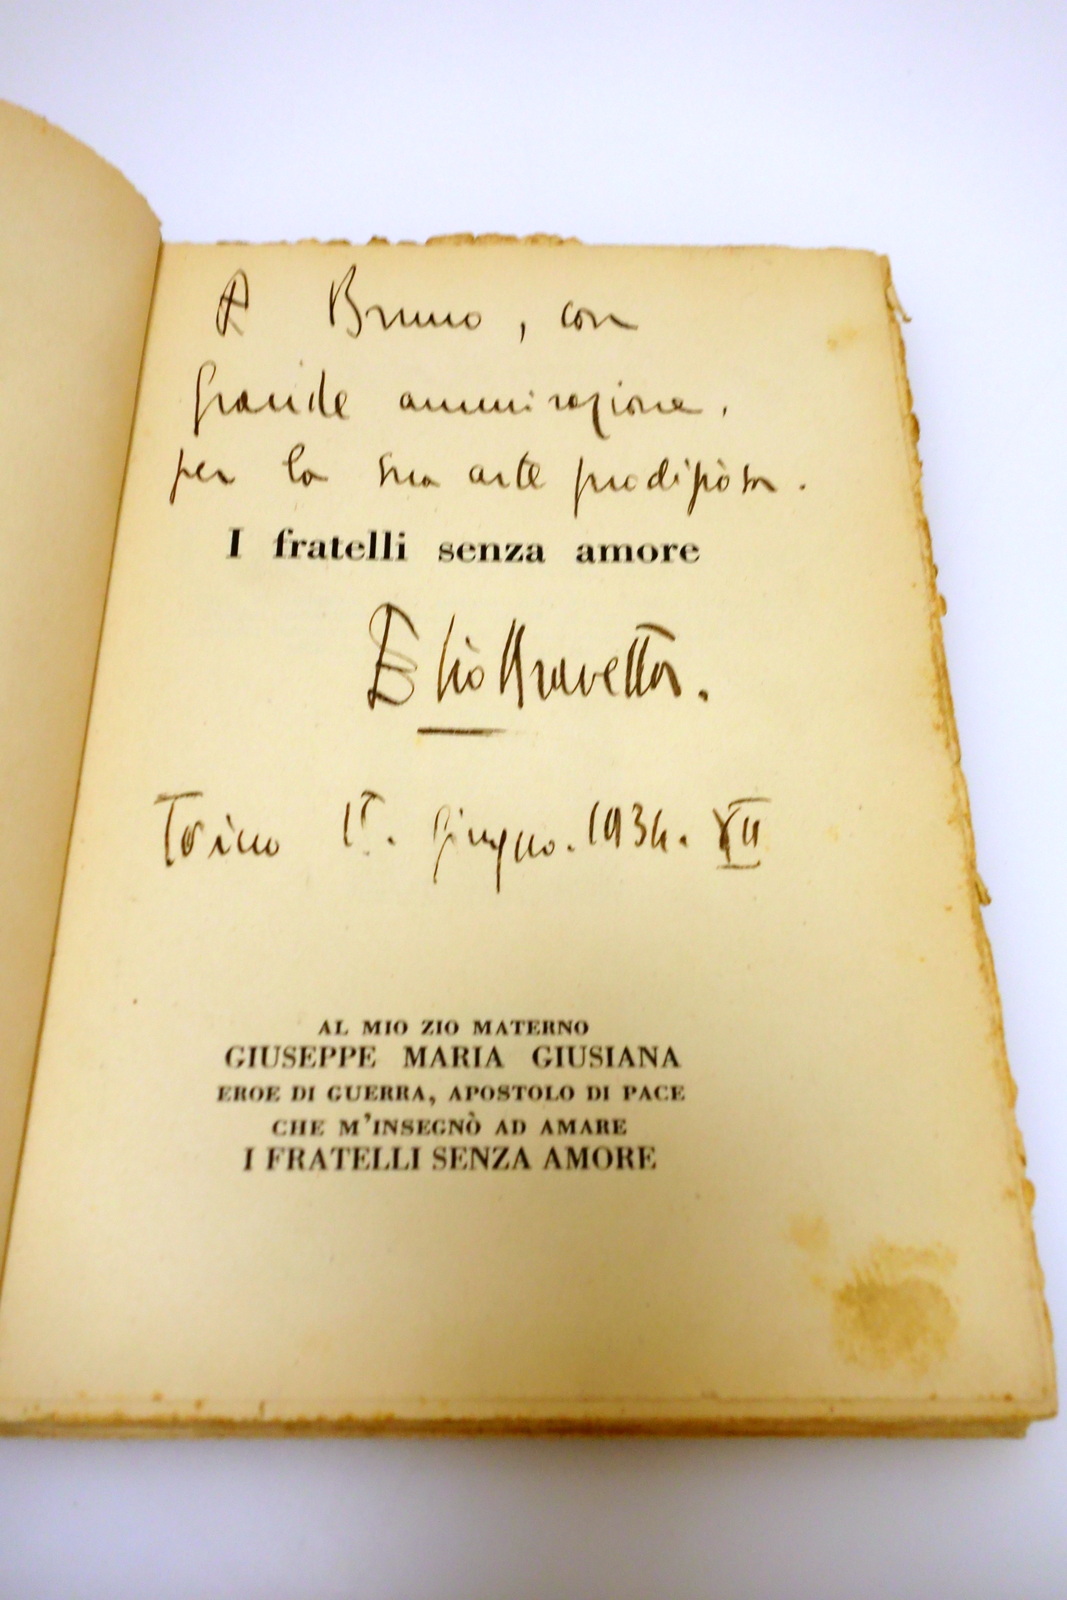 A Bruno, con
grande ammirazione.
per la sua arte prodigiosa.
I fratelli senza amore
Elio Aravetta.
Torino 1º. giugno. 1934. XII
AL MIO ZIO MATERNO
GIUSEPPE MARIA GIUSIANA
EROE DI GUERRA, APOSTOLO DI PACE
CHE M'INSEGNÒ AD AMARE
I FRATELLI SENZA AMORE